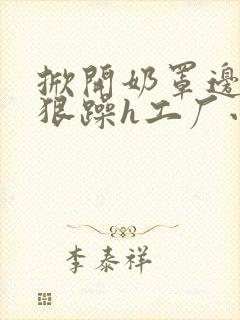 掀開奶罩邊
狠躁h工厂
李泰祥